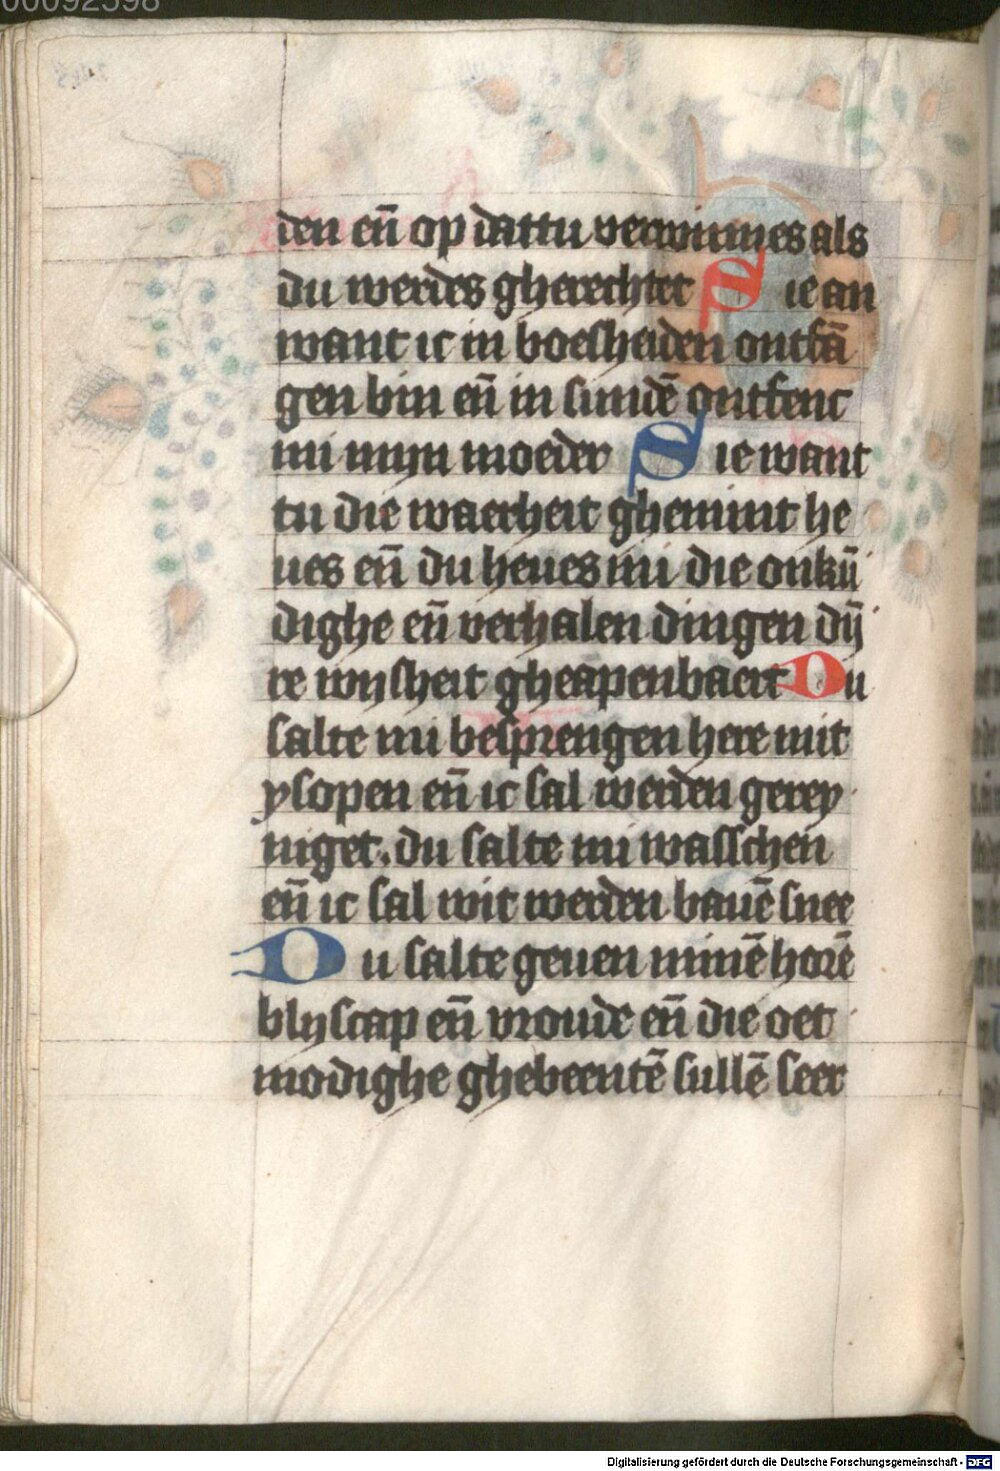 00092598
den en̄ op dattu verwinnes als
du werdes gherechtet Sie an
want ic in boesheiden ontfā
gen bin en̄ in sundē ontfenc
mi mijn moeder Sie want
tu die waerheit ghemint he
ues en̄ du heues mi die onkū
dighe en̄ verhalen dingen dij
re wijsheit gheapenbaert Du
salte mi besprengen here mit
ysopen en̄ ic sal werden gerey
niget. du salte mi wasschen
en̄ ic sal wit werden bauē snee
Du salte geuen minē horē
blijscap en̄ vroude en̄ die oet
modighe ghebeentē sullē seer
Digitalisierung gefördert durch die Deutsche Forschungsgemeinschaft - DFG